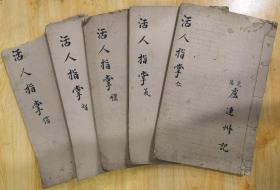 活人指掌 信
活人指掌 智
活人指掌 禮
活人指掌 義
活人指掌 仁
盧連州記